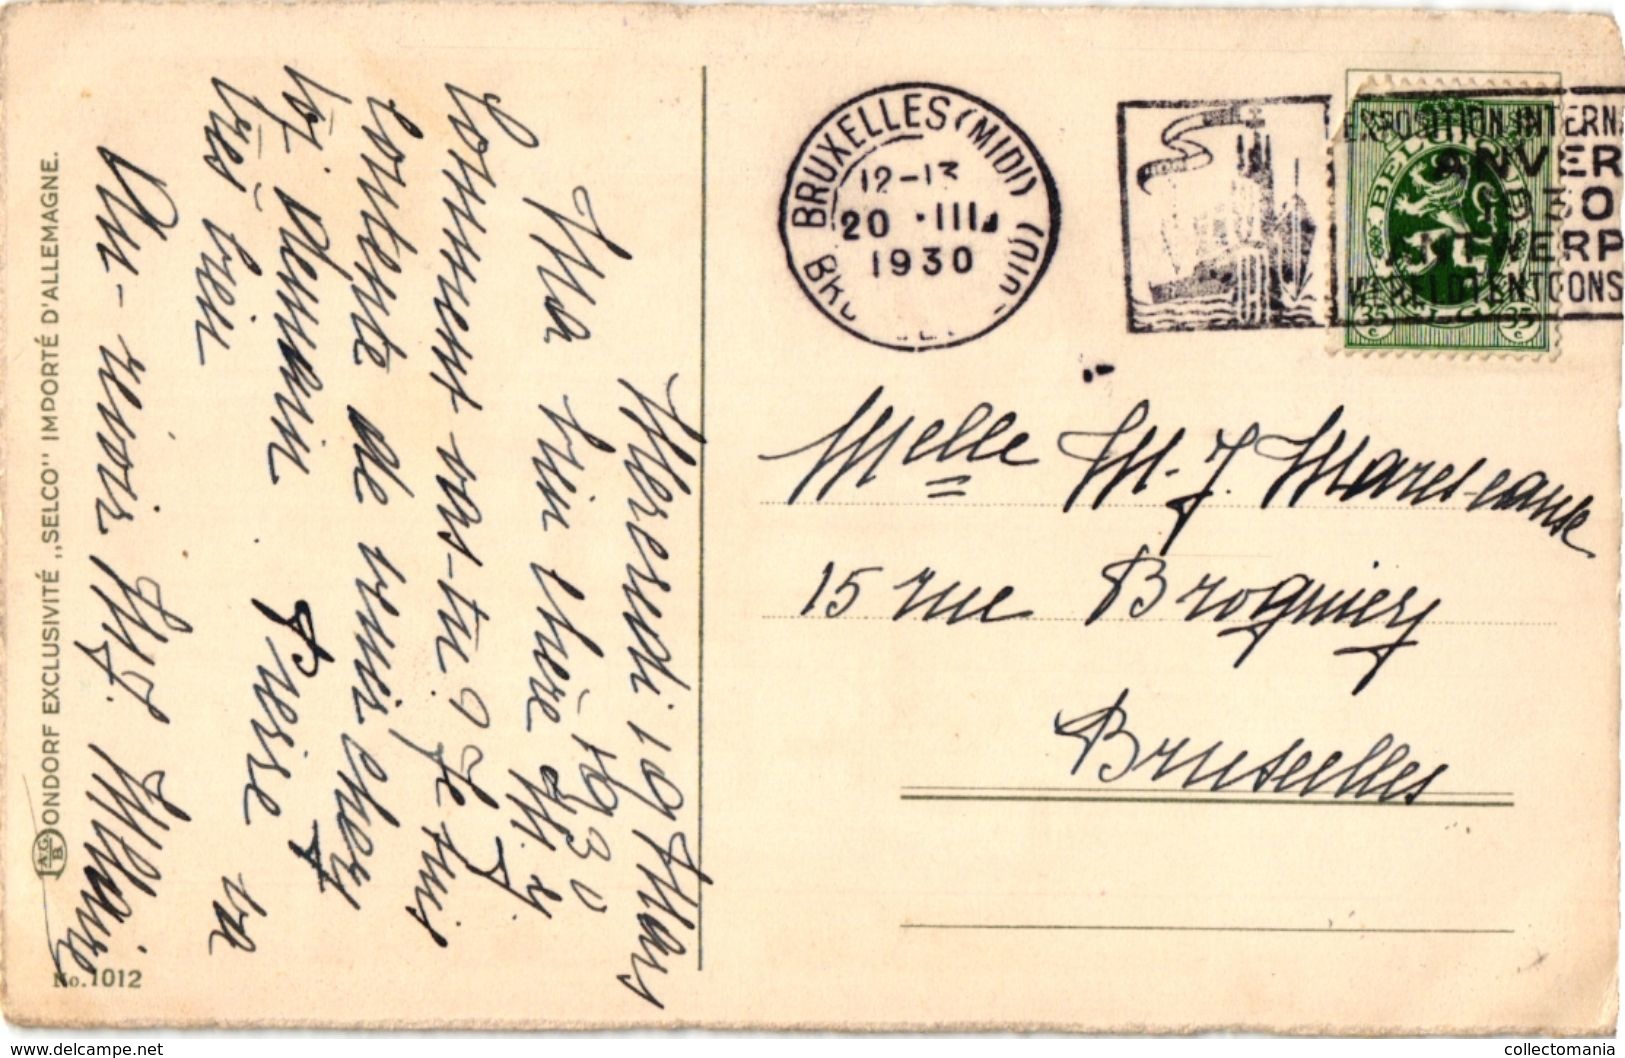 Mercredi 19 Mars
1930
Ma bien chère M. J.
Comment vas-tu? Je suis
contente de venir chez
toi Demain. Pierre va
très bien
Au-revoir M. J. Milaire
ONDORF EXCLUSIVITÉ „SELCO" IMPORTÉ D'ALLEMAGNE.
A.G.
B.
No. 1012
BRUXELLES (MIDI)
12-13
20 III
1930
EXPOSITION INTERNA
ANVER
1930
ANTWERP
WERELDTENTOONS
BELGIQUE
35 c 35 c
Melle M. J. Mares-cause
15 rue Brognier
Bruxelles
www.delcampe.net
collectomania